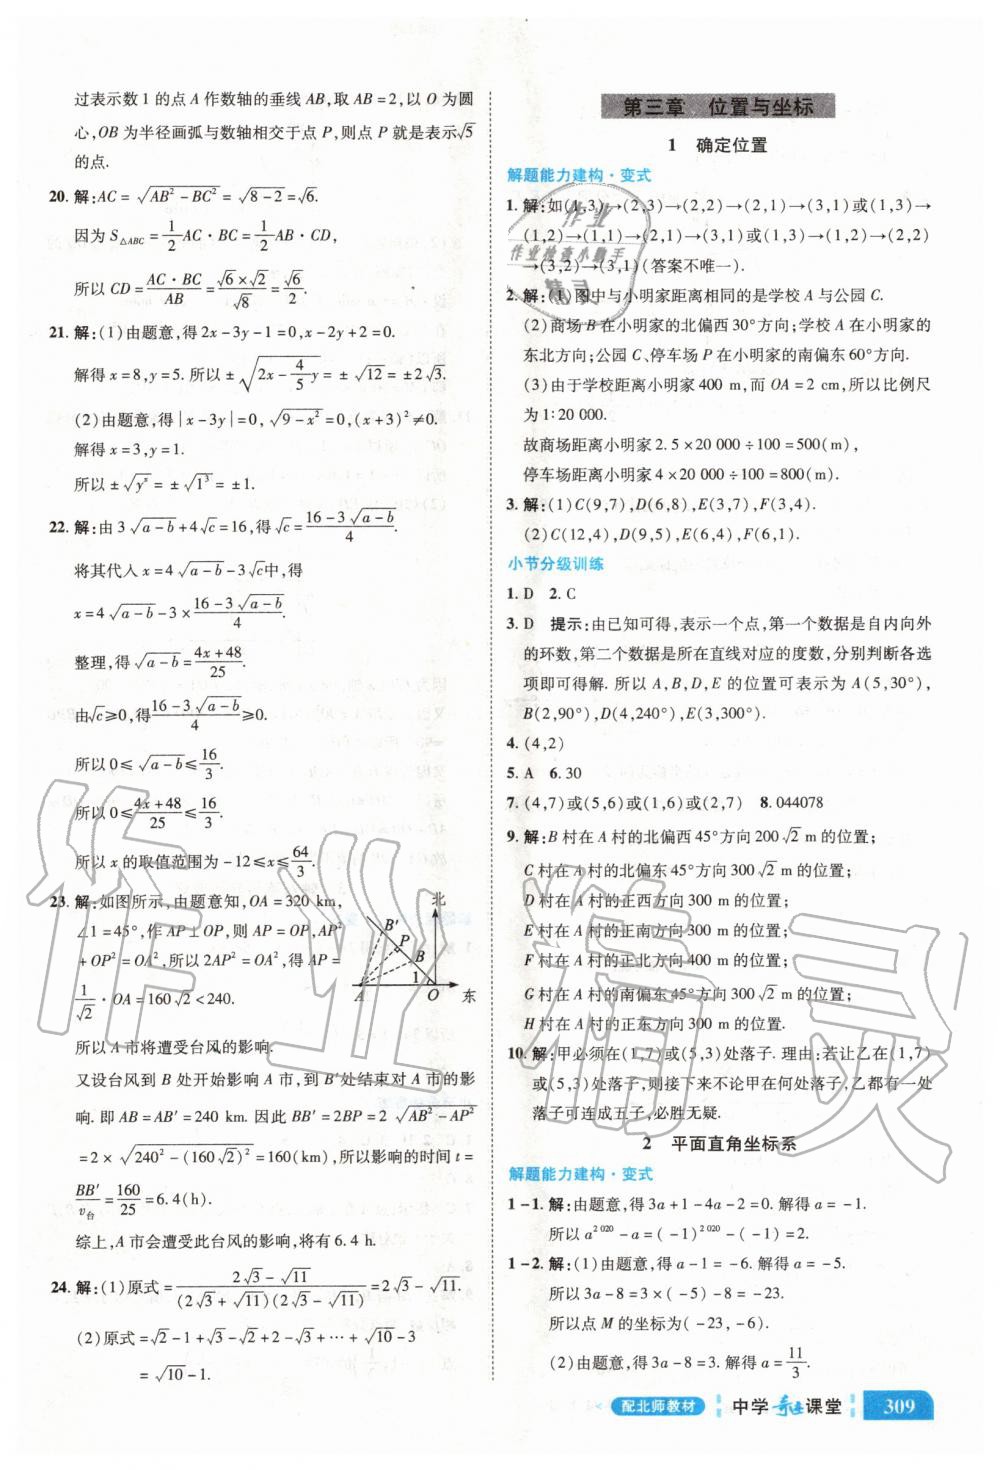 过表示数1的点A作数轴的垂线AB,取AB=2,以O为圆
心,OB为半径画弧与数轴相交于点P,则点P就是表示√5
的点.
20. 解:AC=√(AB²-BC²)=√(8-2)=√6.
因为S△ABC=1/2 AC·BC=1/2 AB·CD,
所以CD=(AC·BC)/AB=(√6×√2)/√8=√6/2.
21. 解:(1)由题意,得2x-3y-1=0,x-2y+2=0.
解得x=8,y=5. 所以±√(2x-4/5 y)=±√12=±2√3.
(2)由题意,得|x-3y|=0,√(9-x²)=0,(x+3)²≠0.
解得x=3,y=1.
所以±√(yˣ)=±√(1³)=±1.
22. 解:由3√(a-b)+4√c=16,得√c=(16-3√(a-b))/4.
将其代入x=4√(a-b)-3√c中,得
x=4√(a-b)-3×(16-3√(a-b))/4.
整理,得√(a-b)=(4x+48)/25.
由√c≥0,得(16-3√(a-b))/4≥0.
所以0≤√(a-b)≤16/3.
所以0≤(4x+48)/25≤16/3.
所以x的取值范围为-12≤x≤64/3.
23. 解:如图所示,由题意知,OA=320 km,
∠1=45°,作AP⊥OP,则AP=OP,AP²
+OP²=OA²,所以2AP²=OA²,得AP=
1/√2·OA=160√2<240.
北
B′
P
B
1
A
O
东
所以A市将遭受台风的影响.
又设台风到B处开始影响A市,到B′处结束对A市的影
响.即AB=AB′=240 km. 因此BB′=2BP=2√(AB²-AP²)
=2×√(240²-(160√2)²)=160(km),所以影响的时间t=
BB′/v台=160/25=6.4(h).
综上,A市会遭受此台风的影响,将有6.4 h.
24. 解:(1)原式=(2√3-√11)/((2√3+√11)(2√3-√11))=2√3-√11.
(2)原式=√2-1+√3-√2+2-√3+…+√10-3
=√10-1.
第三章 位置与坐标
1 确定位置
解题能力建构·变式
1. 解:如(1,3)→(2,3)→(2,2)→(2,1)→(3,1)或(1,3)→
(1,2)→(1,1)→(2,1)→(3,1)或(1,3)→(1,2)→(2,2)
→(3,2)→(3,1)(答案不唯一).
2. 解:(1)图中与小明家距离相同的是学校A与公园C.
(2)商场B在小明家的北偏西30°方向;学校A在小明家的
东北方向;公园C、停车场P在小明家的南偏东60°方向.
(3)由于学校距离小明家400 m,而OA=2 cm,所以比例尺
为1:20 000.
故商场距离小明家2.5×20 000÷100=500(m),
停车场距离小明家4×20 000÷100=800(m).
3. 解:(1)C(9,7),D(6,8),E(3,7),F(3,4).
(2)C(12,4),D(9,5),E(6,4),F(6,1).
小节分级训练
1. D 2. C
3. D 提示:由已知可得,表示一个点,第一个数据是自内向外
的环数,第二个数据是所在直线对应的度数,分别判断各选
项即可得解. 所以A,B,D,E的位置可表示为A(5,30°),
B(2,90°),D(4,240°),E(3,300°).
4. (4,2)
5. A 6. 30
7. (4,7)或(5,6)或(1,6)或(2,7) 8. 044078
9. 解:B村在A村的北偏西45°方向200√2 m的位置;
C村在A村的北偏东45°方向300√2 m的位置;
D村在A村的正西方向300 m的位置;
E村在A村的正南方向300 m的位置;
F村在A村的正北方向400 m的位置;
G村在A村的南偏东45°方向300√2 m的位置;
H村在A村的正东方向300 m的位置.
10. 解:甲必须在(1,7)或(5,3)处落子. 理由:若让乙在(1,7)
或(5,3)处落子,则接下来不论甲在何处落子,乙都有一
处落子可连成五子,必胜无疑.
2 平面直角坐标系
解题能力建构·变式
1-1. 解:由题意,得3a+1-4a-2=0. 解得a=-1.
所以a²⁰²⁰-a=(-1)²⁰²⁰-(-1)=2.
1-2. 解:(1)由题意,得a-1=-6. 解得a=-5.
所以3a-8=3×(-5)-8=-23.
所以点M的坐标为(-23,-6).
(2)由题意,得3a-8=3. 解得a=11/3.
配北师教材
中学奇迹课堂
309
作业
作业检查小助手
精灵
作业精灵